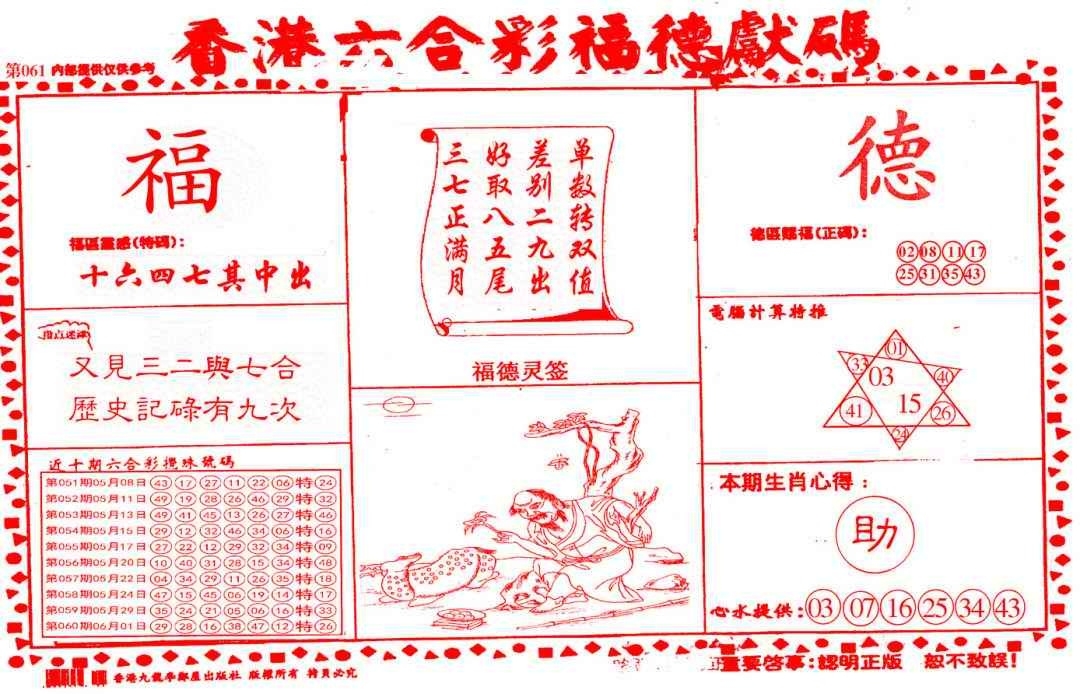 香港六合彩福德獻碼
第061 内部提供仅供参考
福
福區靈感(特碼):
十六四七其中出
指点迷津
又見三二與七合
歷史記碌有九次
近十期六合彩攪珠號碼
第051期05月08日 43 17 27 11 22 06 特 24
第052期05月11日 49 19 28 26 46 29 特 32
第053期05月13日 49 41 45 13 26 27 特 46
第054期05月15日 29 12 32 46 34 06 特 16
第055期05月17日 27 22 12 29 32 34 特 09
第056期05月20日 10 40 31 28 15 34 特 48
第057期05月22日 04 34 29 11 26 35 特 18
第058期05月24日 47 15 45 06 19 14 特 17
第059期05月29日 35 24 21 05 06 16 特 33
第060期06月01日 29 28 16 38 47 12 特 26
单数转双值
差别二九出
好取八五尾
三七正满月
福德灵签
德
德區賜福(正碼):
02 08 11 17
25 31 35 43
電腦計算特推
01
33
03
40
41
15
26
24
本期生肖心得:
助
心水提供: 03 07 16 25 34 43
香港九龍 出版社 版權所有
重要啓事:認明正版 恕不致誤!